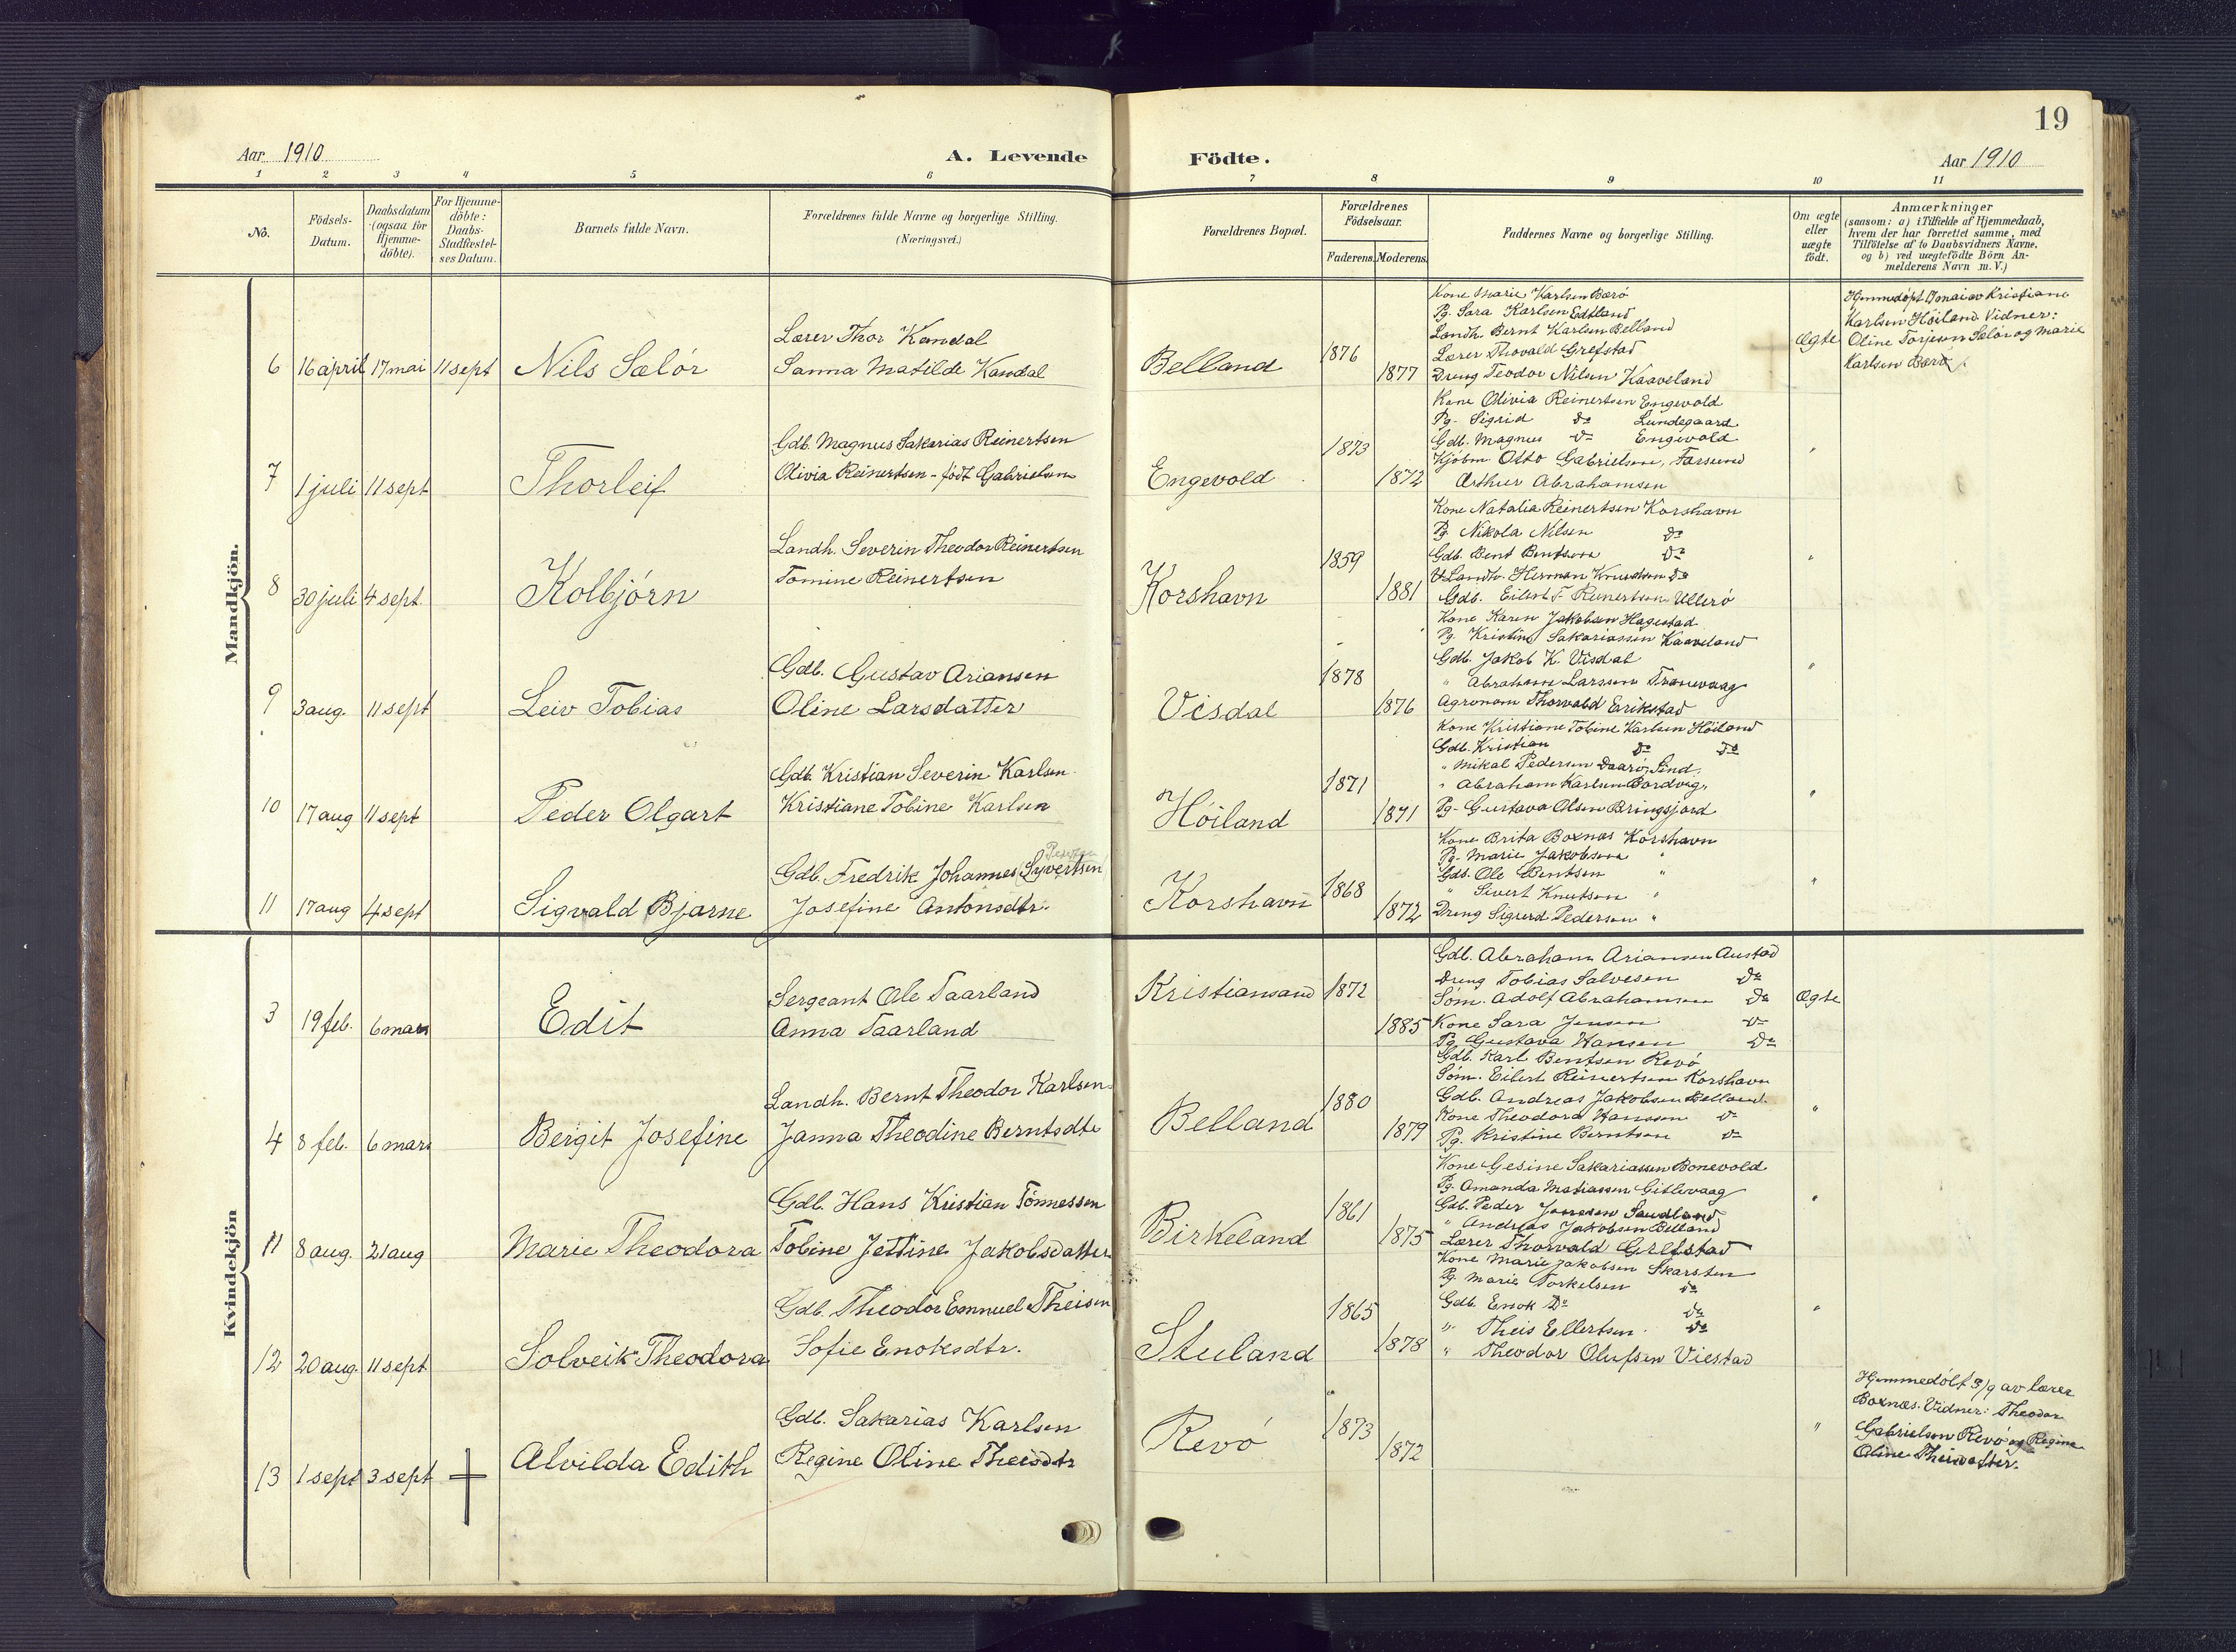 19
Aar 1910
A. Levende
Födte.
Aar 1910
1 2 3 4 5 6 7 8 9 10 11
No.
Födsels-
Datum.
Daabsdatum
(ogsaa for
Hjemme-
döbte).
For Hjemme-
döbte:
Daabs-
Stadfæstel-
ses Datum.
Barnets fulde Navn.
Forældrenes fulde Navne og borgerlige Stilling.
(Næringsvei.)
Forældrenes Bopæl.
Forældrenes
Födselsaar.
Faderens.
Moderens.
Faddernes Navne og borgerlige Stilling.
Om ægte
eller
uægte
födt.
Anmærkninger
(saasom: a) i Tilfælde af Hjemmedaab,
hvem der har forrettet samme, med
Tilföielse af to Daabsvidners Navne,
og b) ved uægtefödte Börn An-
melderens Navn m.V.)
Mandkjön.
6 16 april 17 mai 11 sept Nils Sælör
Lærer Thor Kandal
Sanna Matilde Kandal
Belland 1876 1877
Kone Marie Karlsen Bærö
Pg. Sara Karlsen Edtland
Landh. Bernt Karlsen Belland
Lærer Thovald Grefstad
Dreng Teodor Nilsen Kaaveland
Ægte
Hjemmedöpt 17 mai av Kristiane
Karlsen Höiland. Vidner:
Oline Torjesen Sælör og Marie
Karlsen Bærö
7 1 juli 11 sept Thorleif
Gdb. Magnus Sakarias Reinertsen
Olivia Reinertsen - födt Gabrielsen
Engevold 1873 1872
Kone Olivia Reinertsen Engevold
Pg. Sigrid do Lundegaard
Gdb. Magnus do Engevold
Kjöbm. Otto Gabrielsen, Farsund
Arthur Abrahamsen
"
8 30 juli 4 sept. Kolbjörn
Landh. Severin Theodor Reinertsen
Tomine Reinertsen
Korshavn 1859 1881
Kone Natalia Reinertsen Korshavn
Pg. Nikola Nilsen do
Gdb. Bent Bentsen do
Landh. Herman Knudsen do
Gdb. Eilert F. Reinertsen Ullerö
"
9 3 aug. 11 sept Leiv Tobias
Gdb. Gustav Ariansen
Oline Larsdatter
Visdal 1878 1876
Kone Karen Jakobsen Hagestad
Pg. Kristine Sakariassen Kaaveland
Gdb. Jakob K. Visdal
" Abraham Larssen Tranevaag
Agronom Thorvald Erikstad
"
10 17 aug 11 sept Peder Olgart
Gdb. Kristian Severin Karlsen
Kristiane Tobine Karlsen
Höiland 1871 1871
Kone Kristiane Tobine Karlsen Höiland
Gdb. Kristian do do
" Mikal Pedersen Daarö, Sind.
" Abraham Karlsen Bordvig
Pg. Gustava Olsen Bringsjord
"
11 17 aug 4 sept Sigvald Bjarne
Gdb. Fredrik Johannes (Syvertsen)
Josefine Antonsdtr.
Korshavn 1868 1872
Kone Brita Boxnæs Korshavn
Pg. Marie Jakobsen "
Gdb. Ole Bentsen "
" Sivert Knutsen "
Dreng Sigurd Pedersen "
"
Kvindekjön
3 19 feb. 6 mars Edit
Sergeant Ole Taarland
Anna Taarland
Kristiansand 1872 1885
Gdb. Abraham Ariansen Austad
Dreng Tobias Salvesen do
Söm. Adolf Abrahamsen do
Kone Sara Jensen do
Pg. Gustava Hansen do
Ægte
4 8 feb. 6 mars Bergit Josefine
Landh. Bernt Theodor Karlsen
Janna Theodine Berntsdtr
Belland 1880 1879
Gdb. Karl Bentsen Revö
Söm. Eilert Reinertsen Korshavn
Gdb. Andreas Jakobsen Belland
Kone Theodora Hanssen do
Pg. Kristine Berntsen do
"
11 8 aug. 21 aug Marie Theodora
Gdb. Hans Kristian Tönnessen
Tobine Jettine Jakobsdatter
Birkeland 1861 1875
Kone Gesine Sakariassen Bonevold
Pg. Amanda Matiassen Gitlevaag
Gdb. Peder Jonesen Saudland
" Andreas Jakobsen Belland
Lærer Thorvald Grefstad
"
12 20 aug. 11 sept Solveik Theodora
Gdb. Theodor Emnuel Theisen
Sofie Enoksdtr.
Stuland 1865 1878
Kone Marie Jakobsen Skarsten
Pg. Marie Torkelsen do
Gdb. Enok Do do
" Theis Ellertsen do
" Theodor Olufsen Viestad
"
13 1 sept 3 sept Alvilda Edith
Gdb. Sakarias Karlsen
Regine Oline Theisdtr
Revö 1873 1872
"
Hjemmedöbt 3/9 av lærer
Boxnæs. Vidner: Theodor
Gabrielsen Revö og Regine
Oline Theisdatter.